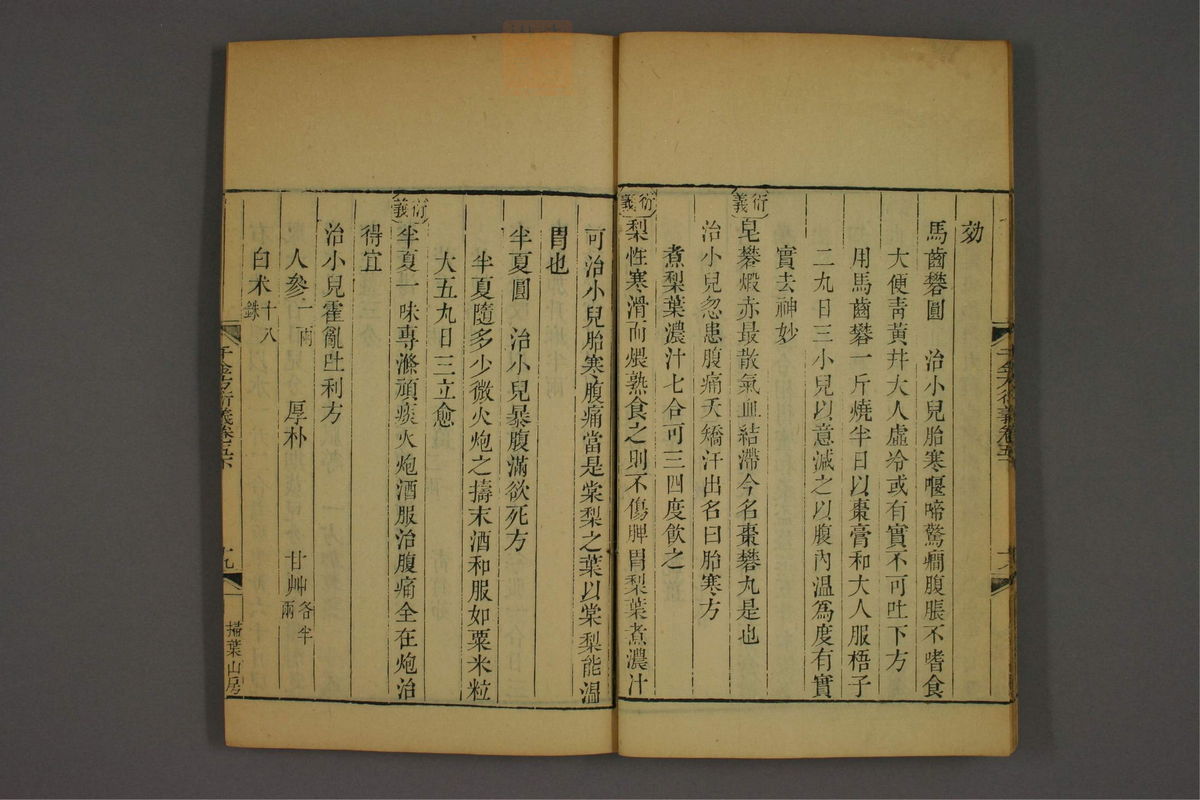 効
馬齒礬圓 治小兒胎寒𠾱啼驚癇腹脹不嗜食
大便靑黃幷大人虛冷或有實不可吐下方
用馬齒礬一斤燒半日以棗膏和大人服梧子
二九日三小兒以意減之以腹內温爲度有實
實去神妙
衍義
皂礬煅赤最散氣血結滯今名棗礬丸是也
治小兒忽患腹痛夭矯汗出名曰胎寒方
煮梨葉濃汁七合可三四度飲之
衍義
梨性寒滑而煨熟食之則不傷脾胃梨葉煮濃汁
可治小兒胎寒腹痛當是棠梨之葉以棠梨能温
胃也
半夏圓 治小兒暴腹滿欲死方
半夏隨多少微火炮之擣末酒和服如粟米粒
大五九日三立愈
衍義
半夏一味專滌頑痰火炮酒服治腹痛全在炮治
得宜
治小兒霍亂吐利方
人參一兩 厚朴 甘艸各半兩
白朮十八銖
千金方衍義卷五下
十九
掃葉山房